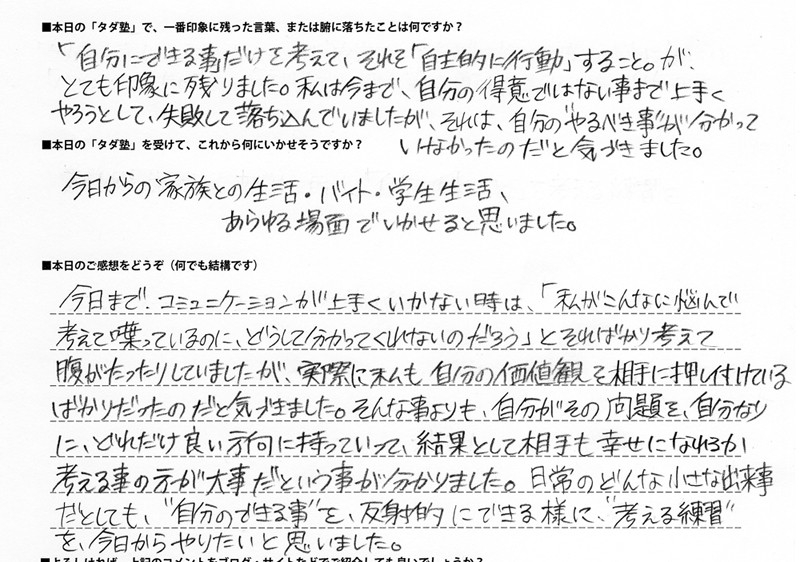 ■本日の「タダ塾」で、一番印象に残った言葉、または腑に落ちたことは何ですか？
「自分にできる事だけを考えて、それを「自主的に行動」すること。が、
とても印象に残りました。私は今まで、自分の得意ではない事まで上手く
やろうとして、失敗して落ち込んでいましたが、それは、自分の"やるべき事"が分かって
いなかったのだと気づきました。
■本日の「タダ塾」を受けて、これから何にいかせそうですか？
今日からの家族との生活・バイト・学生生活、
あらゆる場面でいかせると思いました。
■本日のご感想をどうぞ（何でも結構です）
今日まで、コミュニケーションが上手くいかない時は、「私がこんなに悩んで
考えて喋っているのに、どうして分かってくれないのだろう」とそればかり考えて
腹がたったりしていましたが、実際に私も自分の価値観を相手に押し付けている
ばかりだったのだと気づきました。そんな事よりも、自分がその問題を、自分なり
に、どれだけ良い方向に持っていって、結果として相手も幸せになれるか
考える事の方が大事だという事が分かりました。日常のどんな小さな出来事
だとしても、"自分のできる事"を、反射的にできる様に、"考える練習"
を、今日からやりたいと思いました。
■よろしければ、上記のコメントをブログ・サイトなどでご紹介しても良いでしょうか？